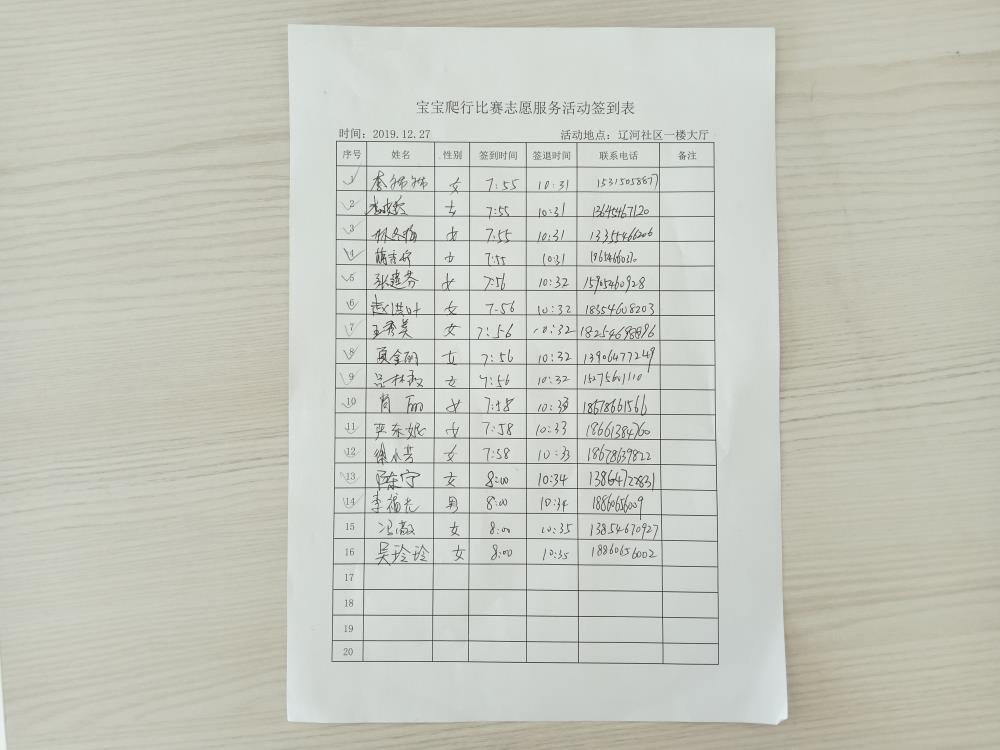 宝宝爬行比赛志愿服务活动签到表
时间：2019.12.27 活动地点：辽河社区一楼大厅
序号 姓名 性别 签到时间 签退时间 联系电话 备注
1 女 7:55 10:31 15315058877
2 女 7:55 10:31 13645467120
3 林冬梅 女 7:55 10:31 13355466206
4 女 7:55 10:31
5 张建芬 女 7:56 10:32 15905460928
6 赵洪叶 女 7:56 10:32 18354608203
7 王秀美 女 7:56 10:32 18254698896
8 女 7:56 10:32 13906477249
9 吕林霞 女 7:56 10:32 15275601110
10 肖丽 女 7:58 10:33 18678661566
11 严东妮 女 7:58 10:33 18661384760
12 徐小芳 女 7:58 10:33 18678639822
13 陈宁 女 8:00 10:34 13864722831
14 李福光 男 8:00 10:34 18860656009
15 冯敏 女 8:00 10:35 13854670927
16 吴玲玲 女 8:00 10:35 18860656002
17
18
19
20